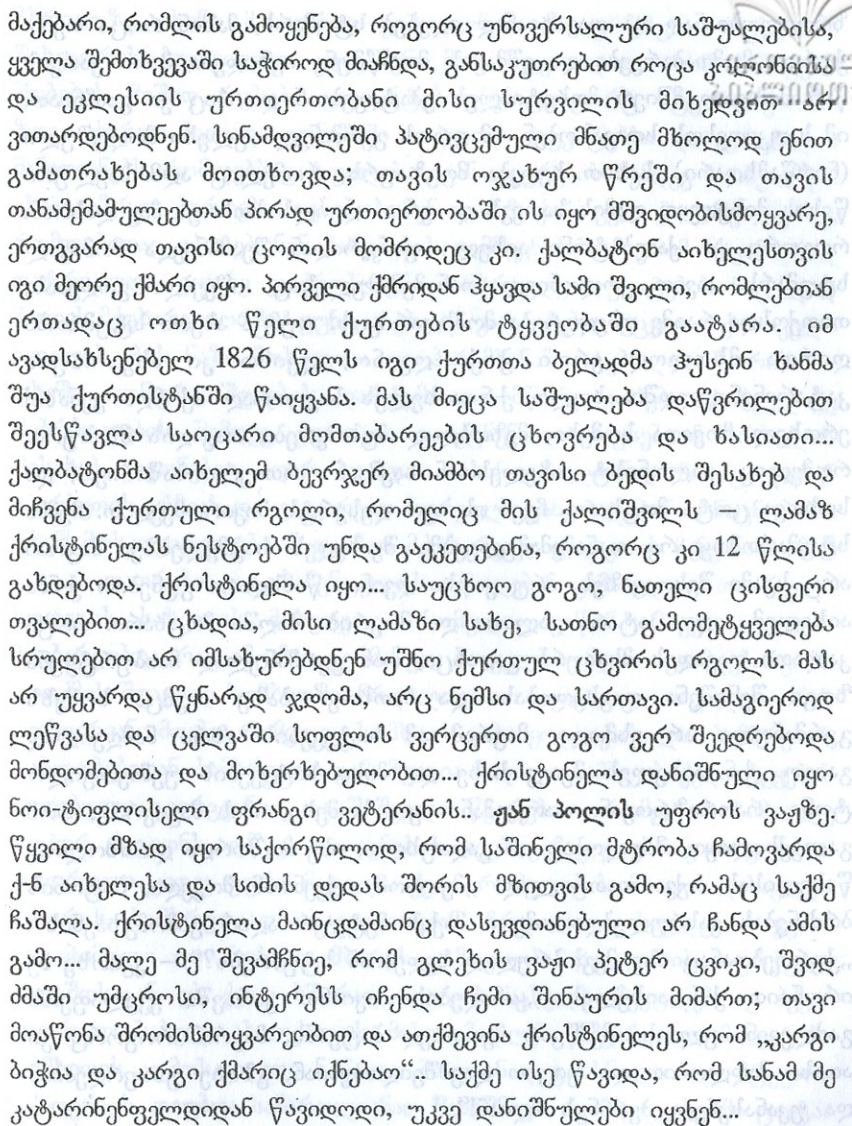 მაქებარი, რომლის გამოყენება, როგორც უნივერსალური საშუალებისა,
ყველა შემთხვევაში საჭიროდ მიაჩნდა, განსაკუთრებით როცა კოლონიისა
და ეკლესიის ურთიერთობანი მისი სურვილის მიხედვით არ
ვითარდებოდნენ. სინამდვილეში პატივცემული მნათე მხოლოდ ენით
გამათრახებას მოითხოვდა; თავის ოჯახურ წრეში და თავის
თანამემამულეებთან პირად ურთიერთობაში ის იყო მშვიდობისმოყვარე,
ერთგვარად თავისი ცოლის მომრიდეც კი. ქალბატონ აიხელესთვის
იგი მეორე ქმარი იყო. პირველი ქმრიდან ჰყავდა სამი შვილი, რომლებთან
ერთადაც ოთხი წელი ქურთების ტყვეობაში გაატარა. იმ
ავადსახსენებელ 1826 წელს იგი ქურთთა ბელადმა ჰუსეინ ხანმა
შუა ქურთისტანში წაიყვანა. მას მიეცა საშუალება დაწვრილებით
შეესწავლა საოცარი მომთაბარეების ცხოვრება და ხასიათი...
ქალბატონმა აიხელემ ბევრჯერ მიამბო თავისი ბედის შესახებ და
მიჩვენა ქურთული რგოლი, რომელიც მის ქალიშვილს – ლამაზ
ქრისტინელას ნესტოებში უნდა გაეკეთებინა, როგორც კი 12 წლისა
გახდებოდა. ქრისტინელა იყო... საუცხოო გოგო, ნათელი ცისფერი
თვალებით... ცხადია, მისი ლამაზი სახე, სათნო გამომეტყველება
სრულებით არ იმსახურებდნენ უშნო ქურთულ ცხვირის რგოლს. მას
არ უყვარდა წყნარად ჯდომა, არც ნემსი და სართავი. სამაგიეროდ
ლეწვასა და ცელვაში სოფლის ვერცერთი გოგო ვერ შეედრებოდა
მონდომებითა და მოხერხებულობით... ქრისტინელა დანიშნული იყო
ნოი-ტიფლისელი ფრანგი ვეტერანის.. ჟან პოლის უფროს ვაჟზე.
წყვილი მზად იყო საქორწილოდ, რომ საშინელი მტრობა ჩამოვარდა
ქ-ნ აიხელესა და სიძის დედას შორის მზითვის გამო, რამაც საქმე
ჩაშალა. ქრისტინელა მაინცდამაინც დასევდიანებული არ ჩანდა ამის
გამო... მალე მე შევამჩნიე, რომ გლეხის ვაჟი პეტერ ცვიკი, შვიდ
ძმაში უმცროსი, ინტერესს იჩენდა ჩემი შინაურის მიმართ; თავი
მოაწონა შრომისმოყვარეობით და ათქმევინა ქრისტინელეს, რომ „კარგი
ბიჭია და კარგი ქმარიც იქნებაო“.. საქმე ისე წავიდა, რომ სანამ მე
კატარინენფელდიდან წავიდოდი, უკვე დანიშნულები იყვნენ...